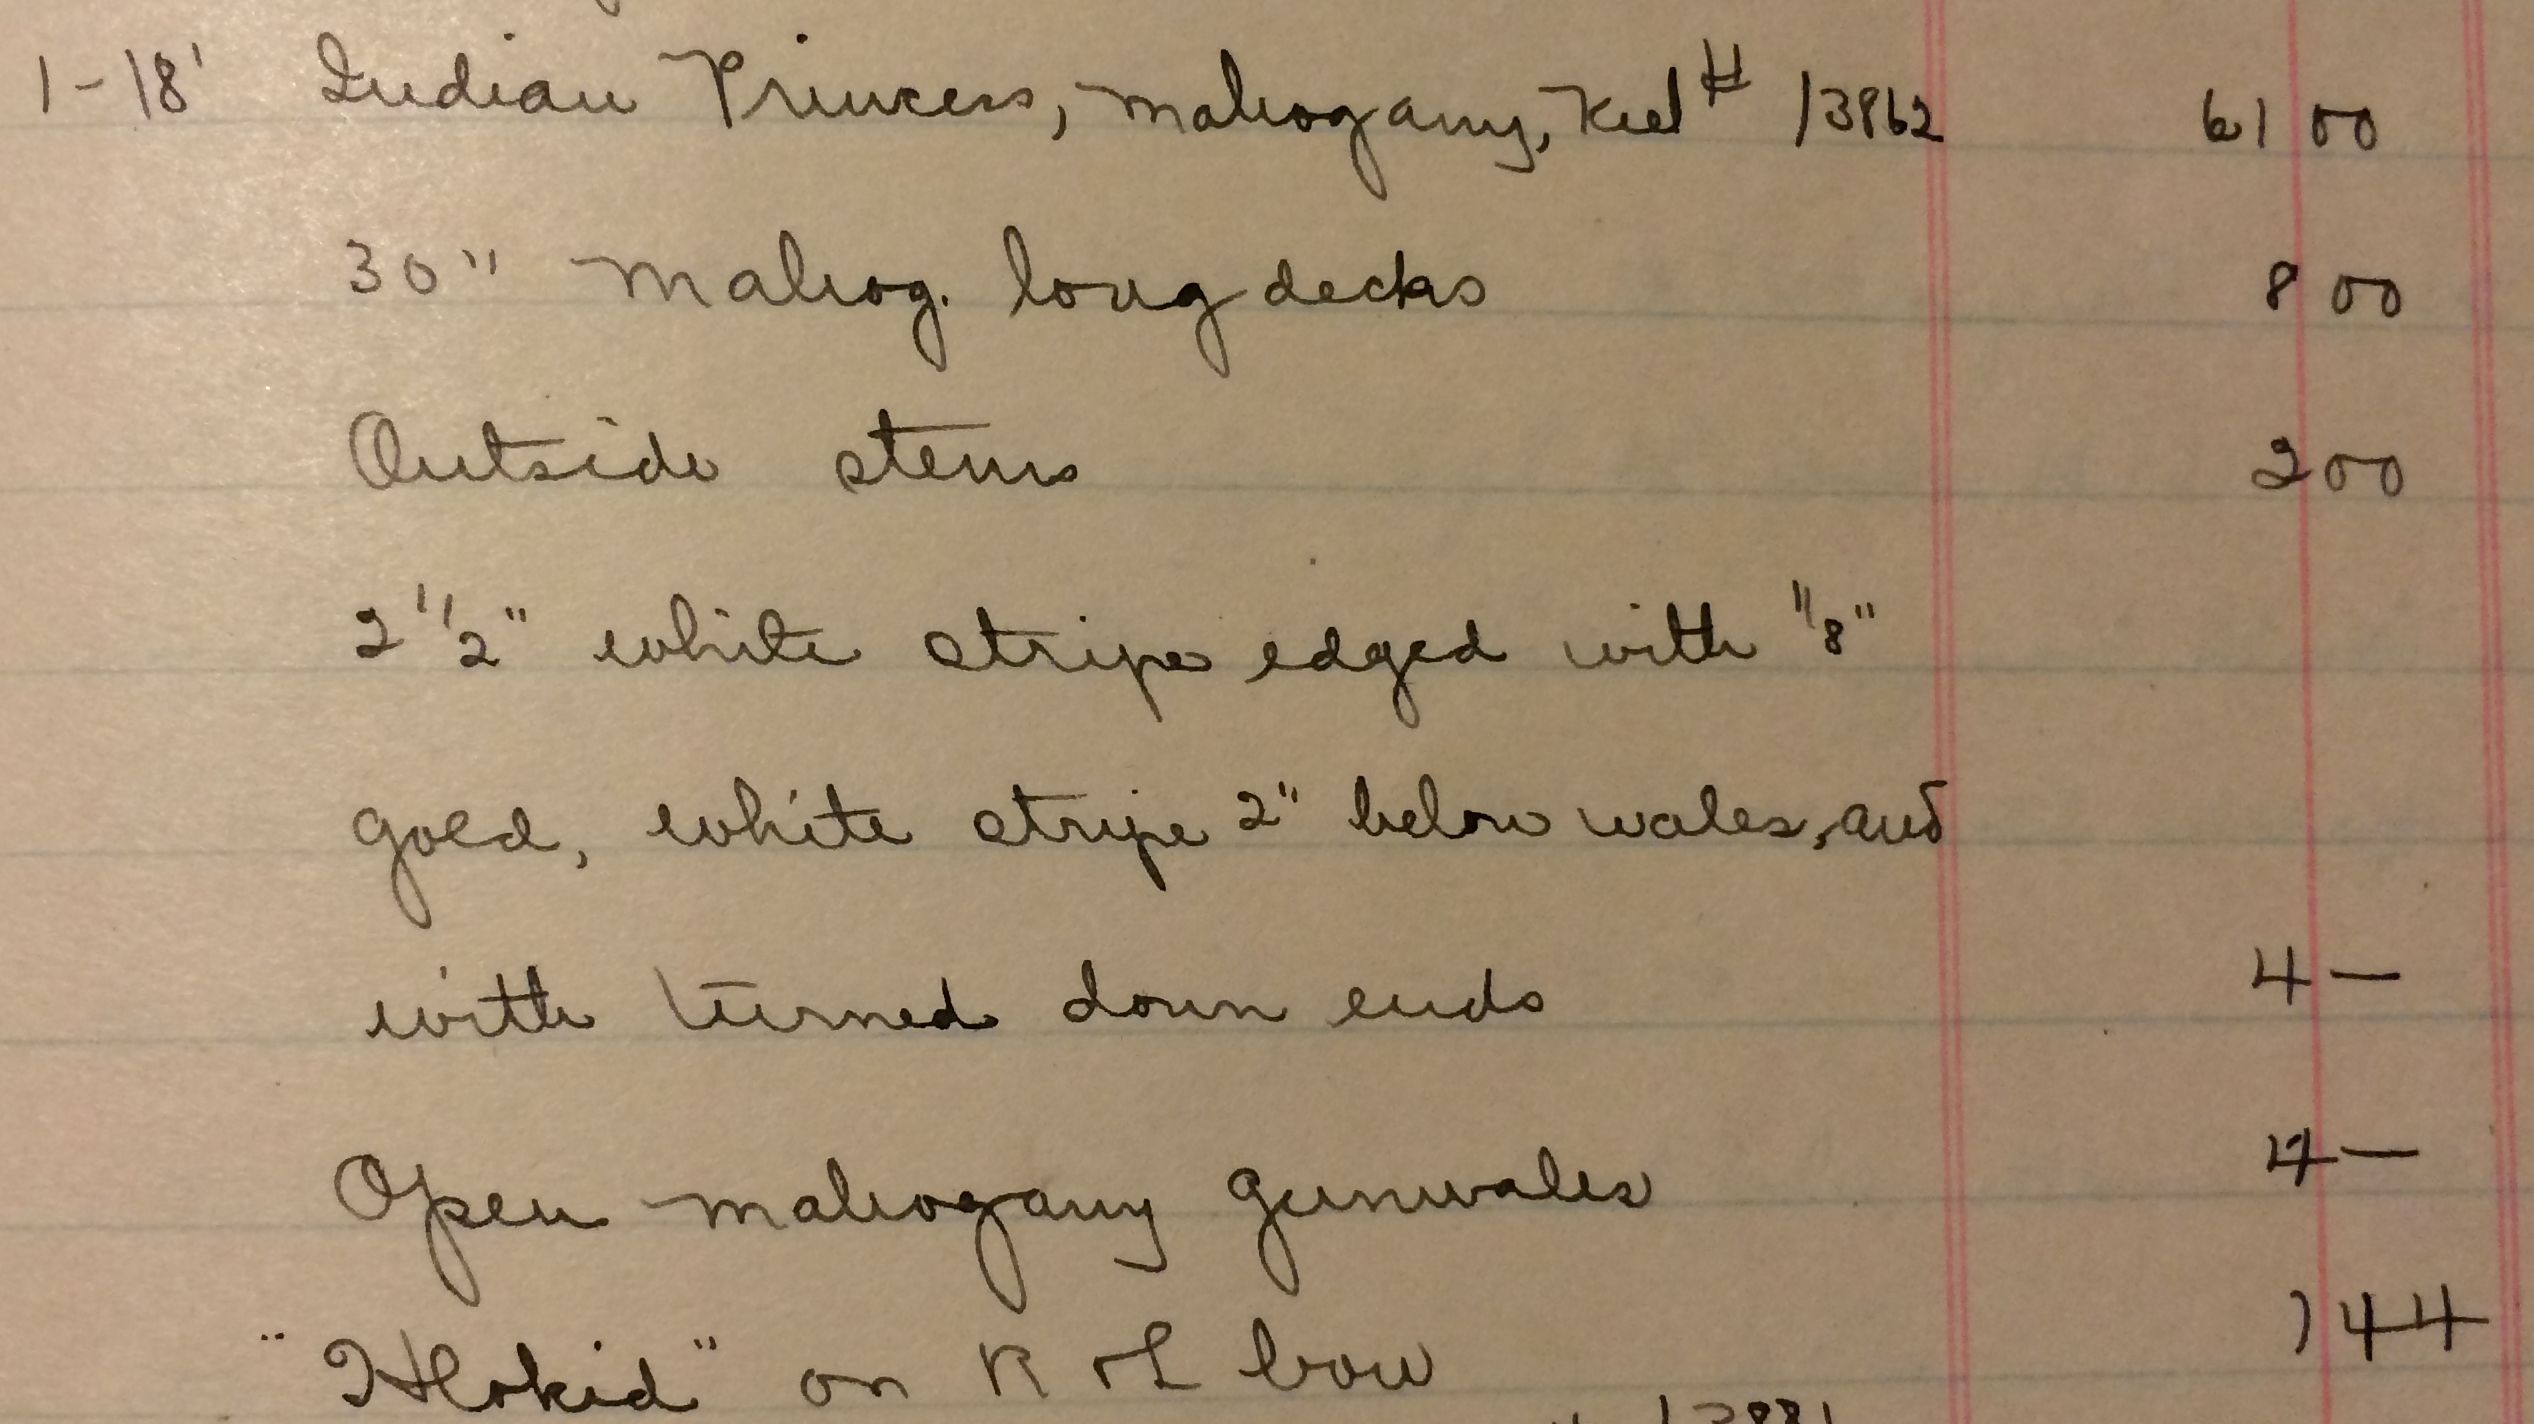 1-18' Indian Princess, Mahogany, Keel # 13962 61 00
30" Mahog. long decks 8 00
Outside stems 2 00
2 1/2" white stripe edged with 1/8"
gold, white stripe 2" below wales, and
with turned down ends 4 —
Open mahogany gunwales 4 —
on R & L bow 1 44
13881